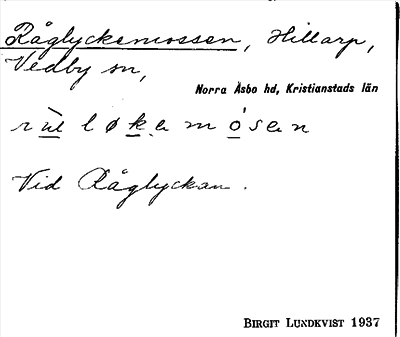 Råglyckemossen, Hillarp,
Vedby sn,
Norra Åsbo hd, Kristianstads län
Vid Råglyckan.
BIRGIT LUNDKVIST 1937